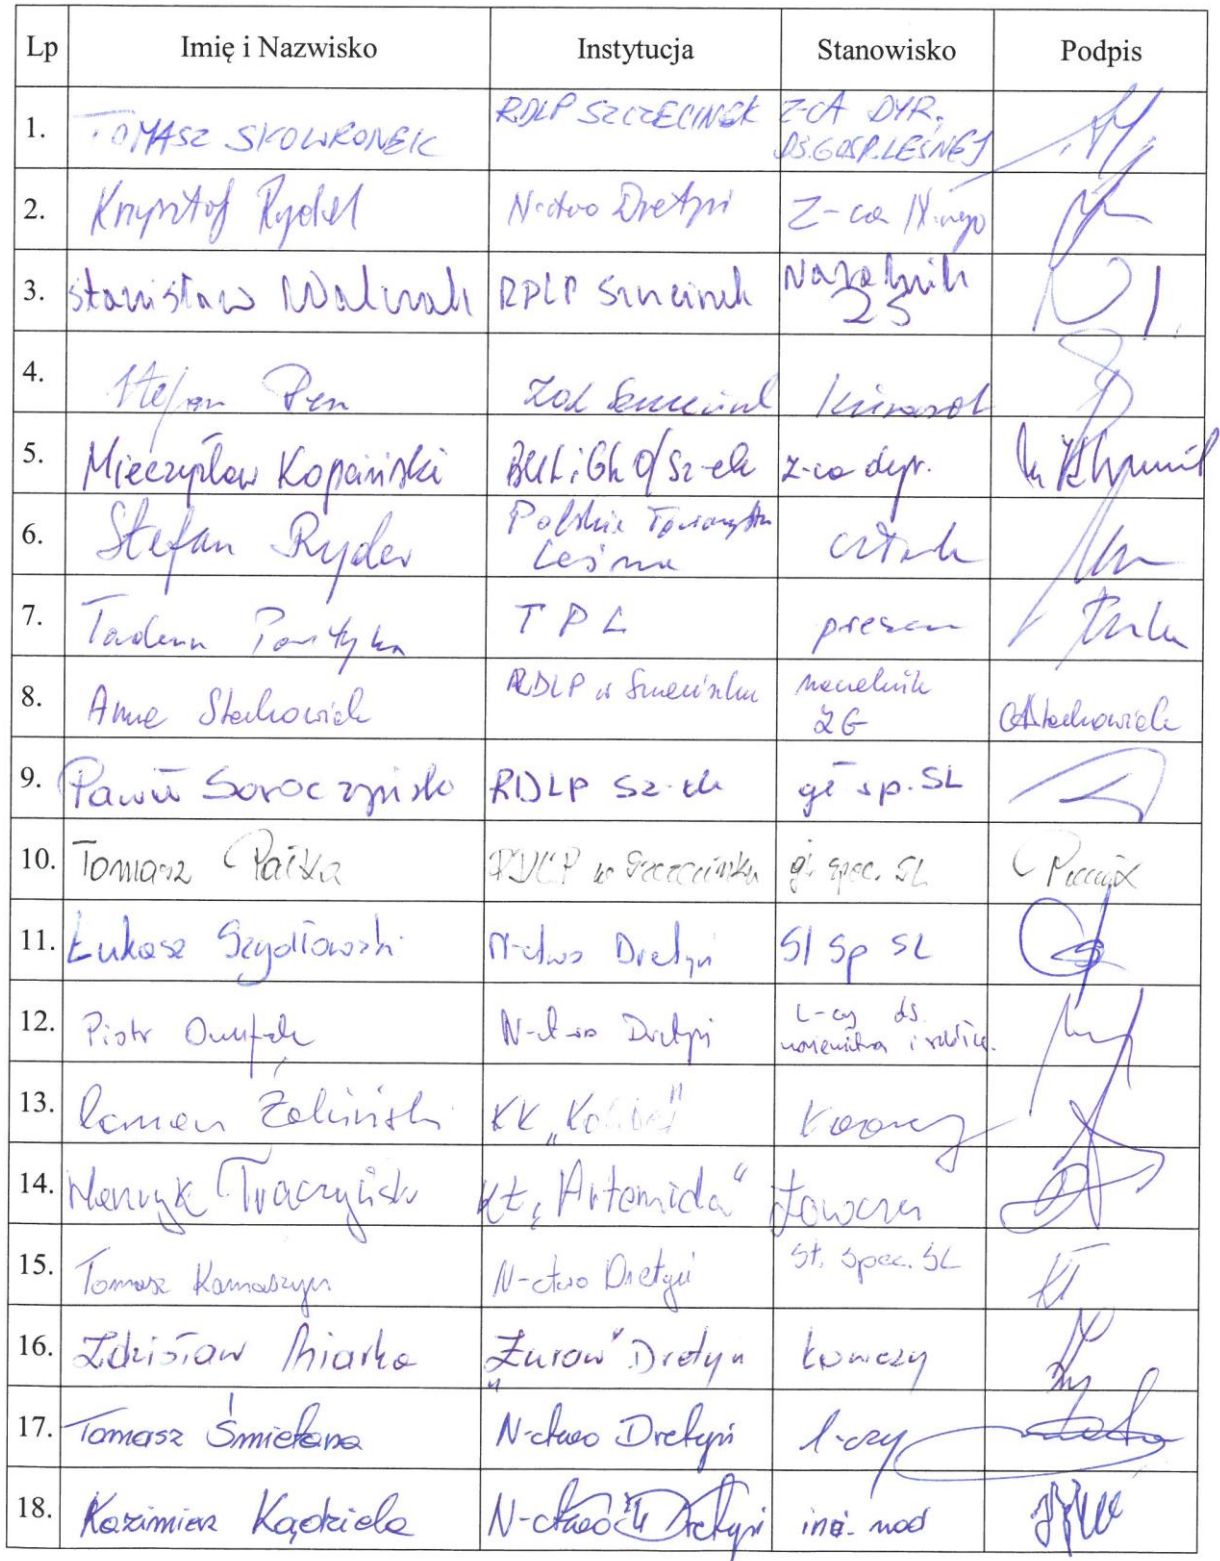 Lp Imię i Nazwisko Instytucja Stanowisko Podpis
1. TOMASZ SKOWRONEK RDLP SZCZECINEK Z-CA DYR. DS.GOSP.LEŚNEJ
2. Krzysztof Rydel N-ctwo Dretyń Z-ca N-nego
3. Stanisław Walczak RDLP Szczecinek Naczelnik ZS
4. Stefan Pen
5. Mieczysław Kopaiński BULiGL O/Sz-ek z-ca dyr.
6. Stefan Ryder Polskie Towarzystwo Leśne członek
7. Tadeusz Partyka TPL prezes
8. Anna Stachowiak RDLP w Szczecinku naczelnik ZG AStachowiak
9. Paweł Soroczyński RDLP Sz-ek gł sp. SL
10. Tomasz RDLP w Szczecinku gł. spec. SL
11. Łukasz Szydłowski N-ctwo Dretyń St Sp SL
12. Piotr N-ctwo Dretyń L-czy ds.
13. Roman Zieliński KK „
14. Henryk Traczyński KŁ „Artemida" Łowczy
15. Tomasz Kamaszyn N-ctwo Dretyń St. Spec. SL
16. Zdzisław Miarka „Żuraw" Dretyń Łowczy
17. Tomasz Śmietana N-ctwo Dretyń l-czy
18. Kazimierz Kądziela N-ctwo Dretyń inż. nad